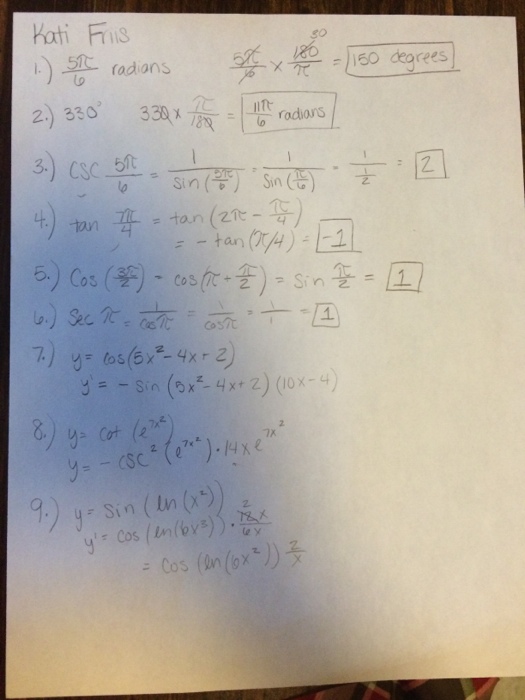 Kati Friis
1.) 5π/6 radians 5π/6 × 180/π 30 = 150 degrees
2.) 330° 330 × π/180 = 11π/6 radians
3.) csc 5π/6 = 1/sin(5π/6) = 1/sin(π/6) = 1/(1/2) = 2
4.) tan 7π/4 = tan (2π - π/4)
= - tan (π/4) = -1
5.) Cos (3π/2) = cos (π + π/2) = sin π/2 = 1
6.) Sec π = 1/cosπ = 1/cosπ = 1/1 = 1
7.) y = cos(5x² - 4x + 2)
y' = - sin (5x² - 4x + 2) (10x - 4)
8.) y = cot (e^7x²)
y = - csc² (e^7x²) · 14xe^7x²
9.) y = sin (ln (x²))
y' = cos (ln(6x²)) · 12x/6x 2
= cos (ln (6x²)) 2/x